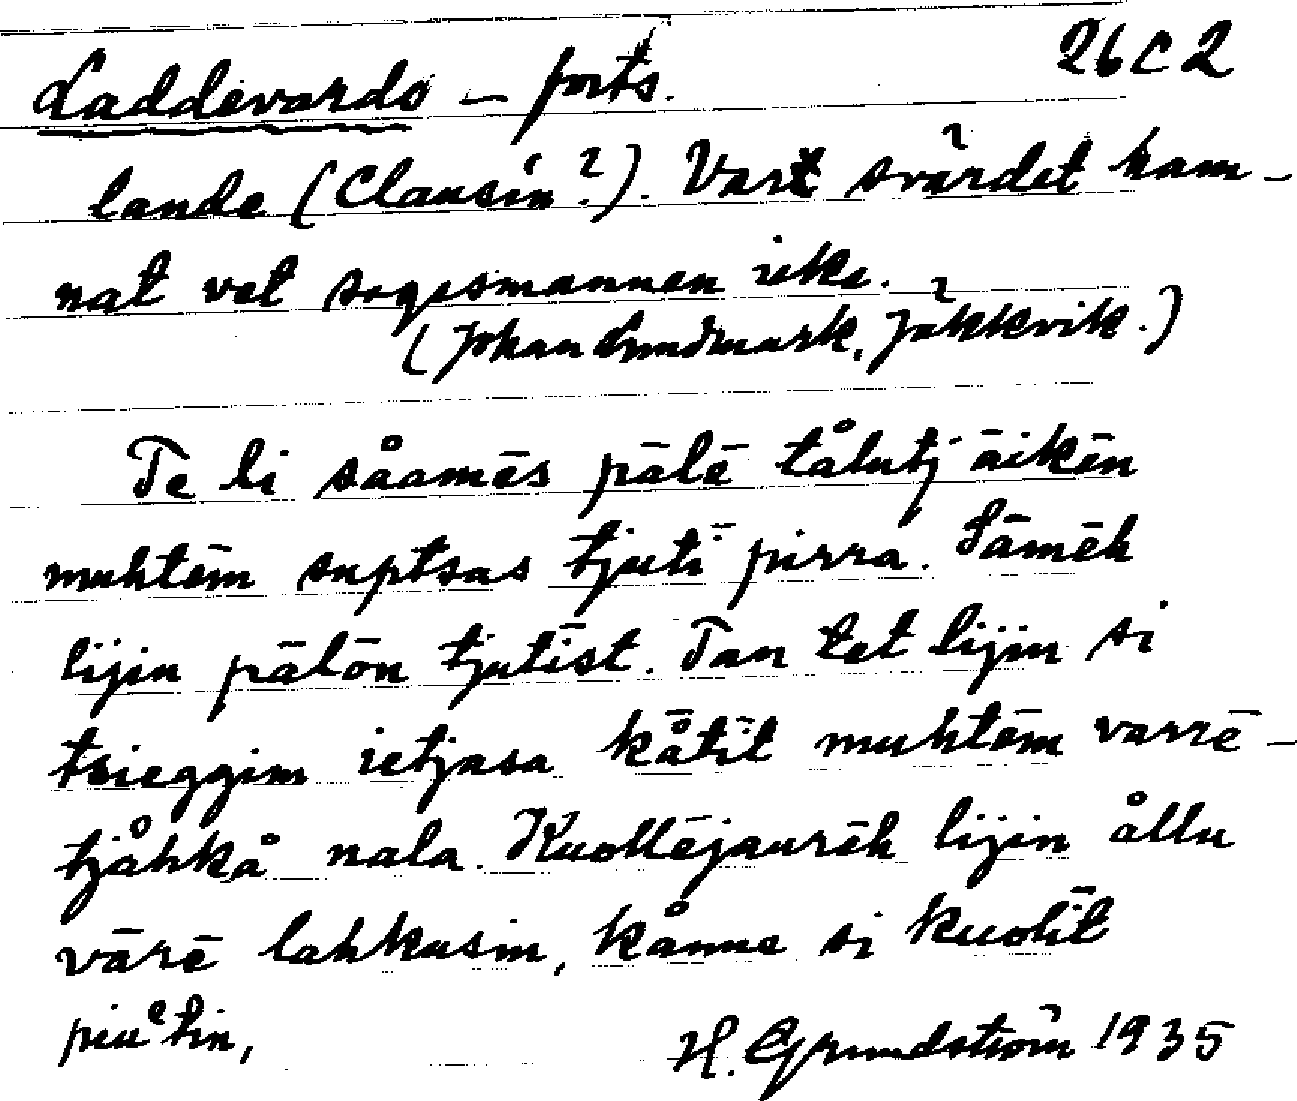 Laddevardo – forts. 26 C 2
lande (Clausén?). Vart svärdet ham-
nat vet sagesmannen icke.
(Johan Lundmark, Jäkkvik.)
Te li såamēs pālē tålutj āikēn
muhtēm suptsas tjutī pirra. Sāmēh
lijin pālōn tjutīst. Tan tet lijin si
tsieggim ietjasa kå̄tīt muhtēm varrē-
tjåhkå nala. Kuollējaurēh lijin ållu
vārē lahkusin, kånne si kuolīt
piuᵉtin,
H. Grundström 1935